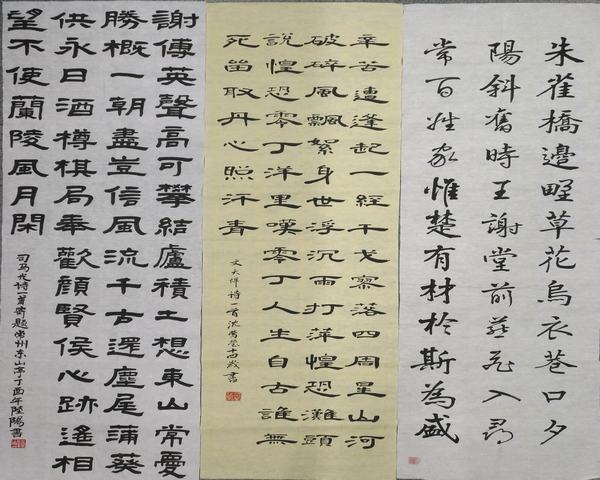 朱雀橋邊野草花烏衣巷口夕
陽斜舊時王謝堂前燕飛入尋
常百姓家惟楚有材於斯為盛
辛苦遭逢起一經干戈寥落四周星山河
破碎風飄絮身世浮沉雨打萍惶恐灘頭
說惶恐零丁洋里嘆零丁人生自古誰無
死留取丹心照汗青
文天祥詩一首沈十四歲書
謝傅英聲高可攀結廬積土想東山常憂
勝概一朝盡豈信風流千古還麈尾蒲葵
供永日酒樽棋局奉歡顏賢侯心跡遙相
望不使蘭陵風月閑
司马光詩一首寄題常州东山亭丁酉年陸陽書